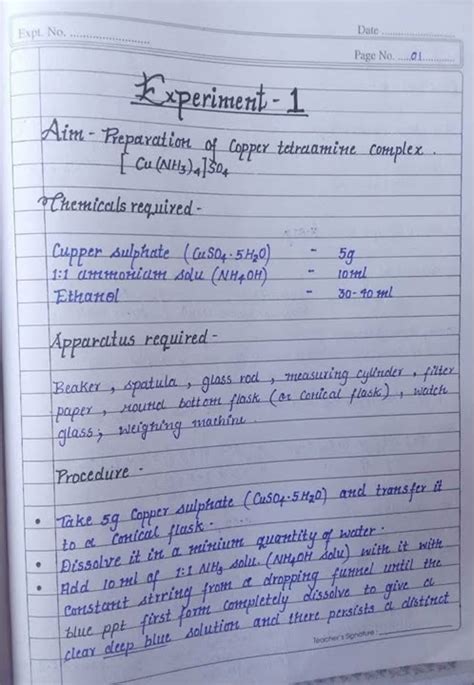 Expt. No. ..............................
Date ..............................
Page No. .....01.....
Experiment - 1
Aim - Preparation of Copper tetraamine complex.
[Cu(NH3)4]SO4
Chemicals required -
Cupper sulphate (CuSO4·5H2O) - 5g
1:1 ammonium solu (NH4OH) - 10ml
Ethanol - 30-40 ml
Apparatus required -
Beaker, spatula, glass rod, measuring cylinder, filter
paper, round bottom flask (or conical flask), watch
glass, weighing machine.
Procedure -
• Take 5g Copper sulphate (CuSO4·5H2O) and transfer it
to a conical flask.
• Dissolve it in a minium quantity of water.
• Add 10 ml of 1:1 NH3 solu. (NH4OH solu) with it with
constant strring from a dropping funnel until the
blue ppt first form completely dissolve to give a
clear deep blue solution and there persists a distinct
Teacher's Signature : ..............................